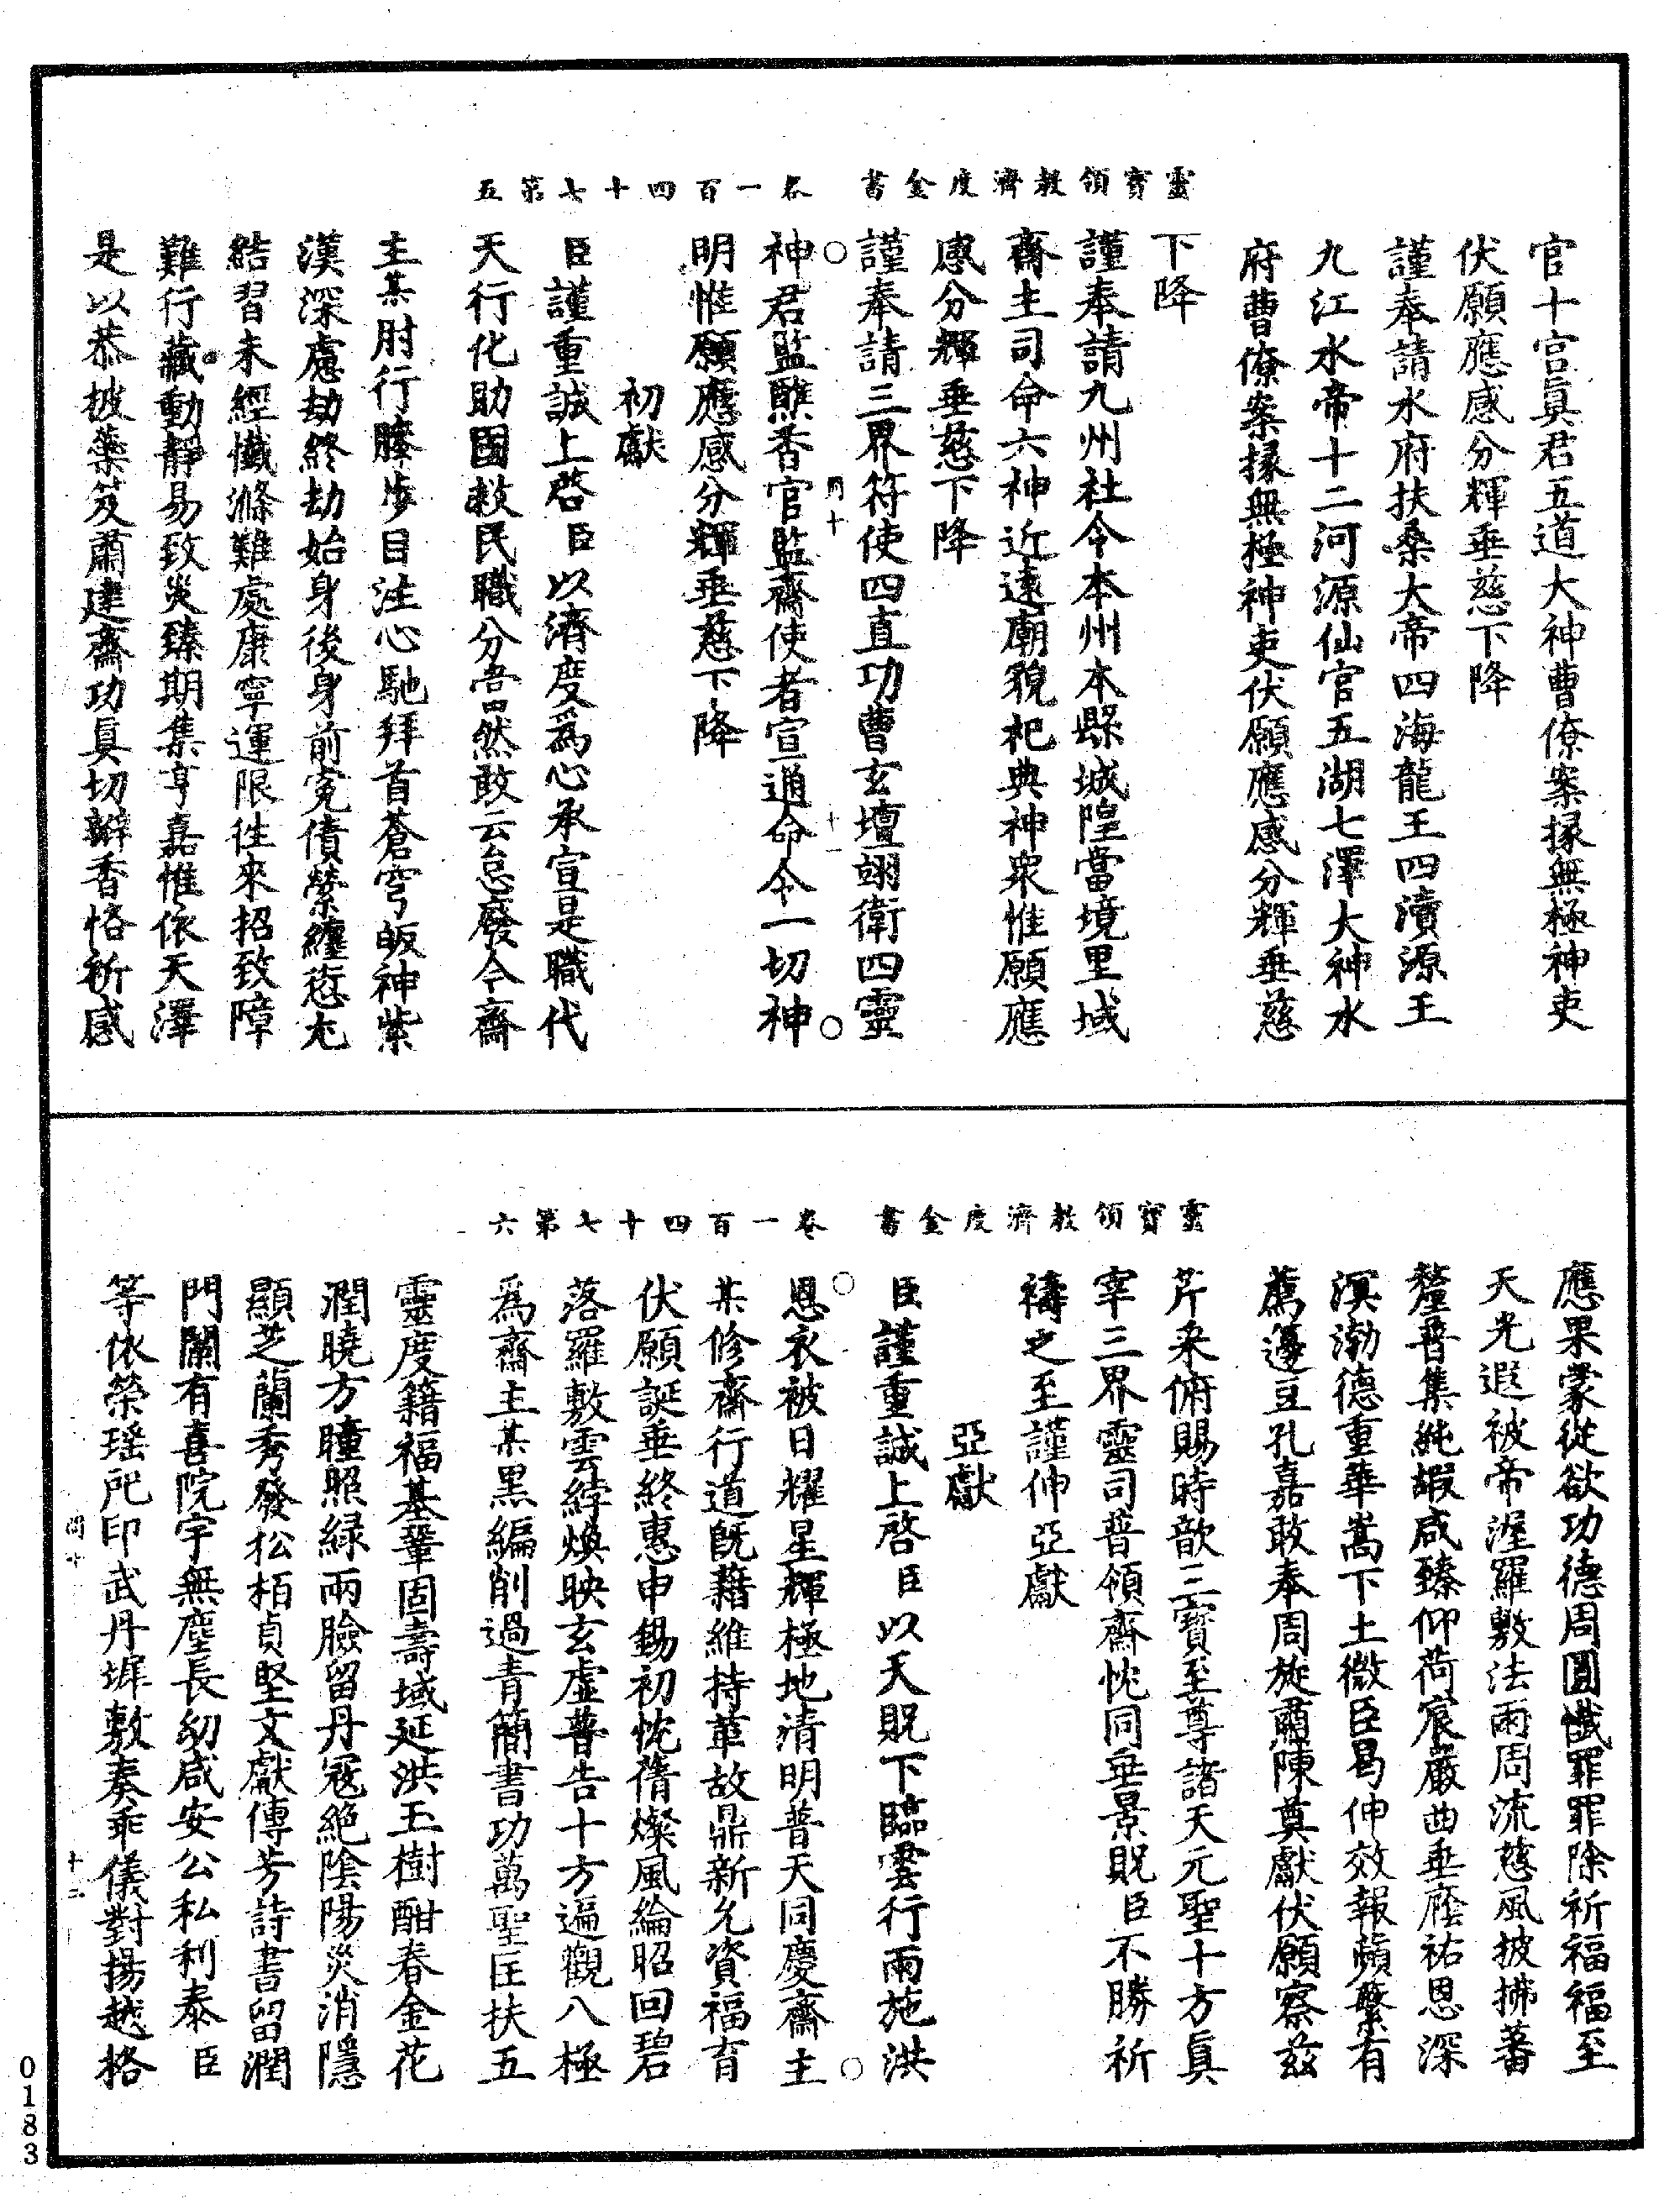 靈寶領教濟度金書　卷一百四十七第五
官十宮眞君五道大神曹僚案掾無極神吏
伏願應感分輝垂慈下降
謹奉請水府扶桑大帝四海龍王四瀆源王
九江水帝十二河源仙官五湖七澤大神水
府曹僚案掾無極神吏伏願應感分輝垂慈
下降
謹奉請九州社令本州本縣城隍當境里域
齋主司命六神近遠廟貌祀典神衆惟願應
感分輝垂慈下降
謹奉請三界符使四直功曹玄壇翊衛四靈
神君監醮香官監齋使者宣通命令一切神
明惟願應感分輝垂慈下降
初獻
臣謹重誠上啓臣以濟度爲心承宣是職代
天行化助國救民職分吾然敢云怠廢今齋
主某肘行膝步目注心馳拜首蒼穹皈神紫
漢深慮劫終劫始身後身前寃債縈纏愆尤
結習未經懺滌難處康寧運限往來招致障
難行藏動靜易致災臻期集亨嘉惟依天澤
是以恭披藥笈肅建齋功眞切瓣香恪祈感
問十　十一
靈寶領教濟度金書　卷一百四十七第六
應果蒙從欲功德周圓懺罪罪除祈福福至
天光遐被帝渥羅敷法雨周流慈風披拂蕃
釐普集純嘏咸臻仰荷宸嚴曲垂庥祐恩深
溟渤德重華嵩下土微臣曷伸效報蘋蘩有
薦籩豆孔嘉敢奉周旋肅陳奠獻伏願察兹
芹采俯賜時歆三寶至尊諸天元聖十方眞
宰三界靈司普領齋忱同垂景貺臣不勝祈
禱之至謹伸亞獻
亞獻
臣謹重誠上啓臣以天貺下臨雲行雨施洪
恩衣被日耀星輝極地清明普天同慶齋主
某修齋行道旣藉維持革故鼎新允資福育
伏願誕垂終惠申錫初忱蒨燦風綸昭回碧
落羅敷雲綍煥映玄虛普告十方遍觀八極
爲齋主某黑編削過青簡書功萬聖匡扶五
靈度籍福基鞏固壽域延洪玉樹酣春金花
潤曉方瞳照緑兩臉留丹寇絶陰陽災消隱
顯芝蘭秀發松柏貞堅文獻傳芳詩書留潤
門闌有喜院宇無塵長幼咸安公私利泰臣
等依榮瑶戺印武丹墀敷奏乖儀對揚越格
問十　十二
0183